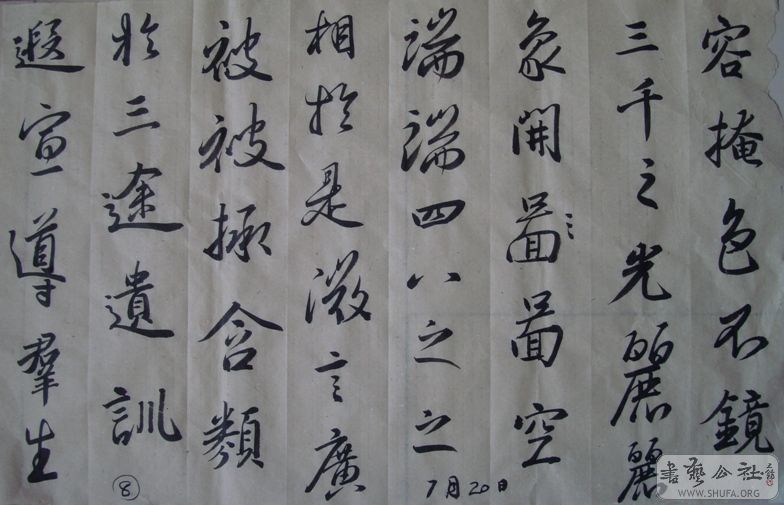 容掩色不鏡
三千之光麗麗
象開圖圖空
端端四八之之
相於是微言廣
被被拯含類
於三途遺訓
遐宣導羣生
⑧
7月20日
書藝公社
WWW.SHUFA.ORG